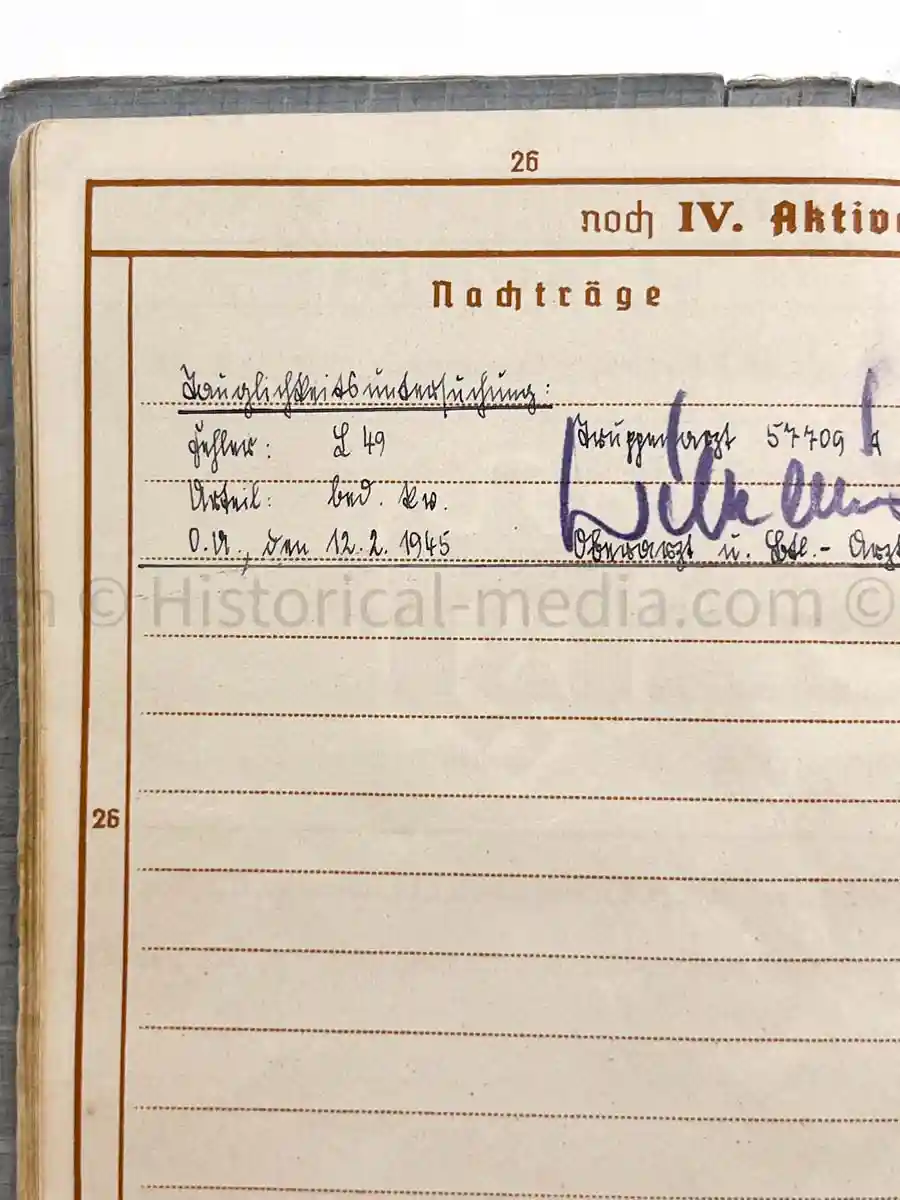 26
noch IV. Aktive
Nachträge
Tauglichkeitsuntersuchung:
Fehler: L 49
Truppenarzt 57709 A
Urteil: bed. kv.
O.U., den 12.2.1945
Oberarzt u. Btl.-Arzt
© Historical-media.com ©
26